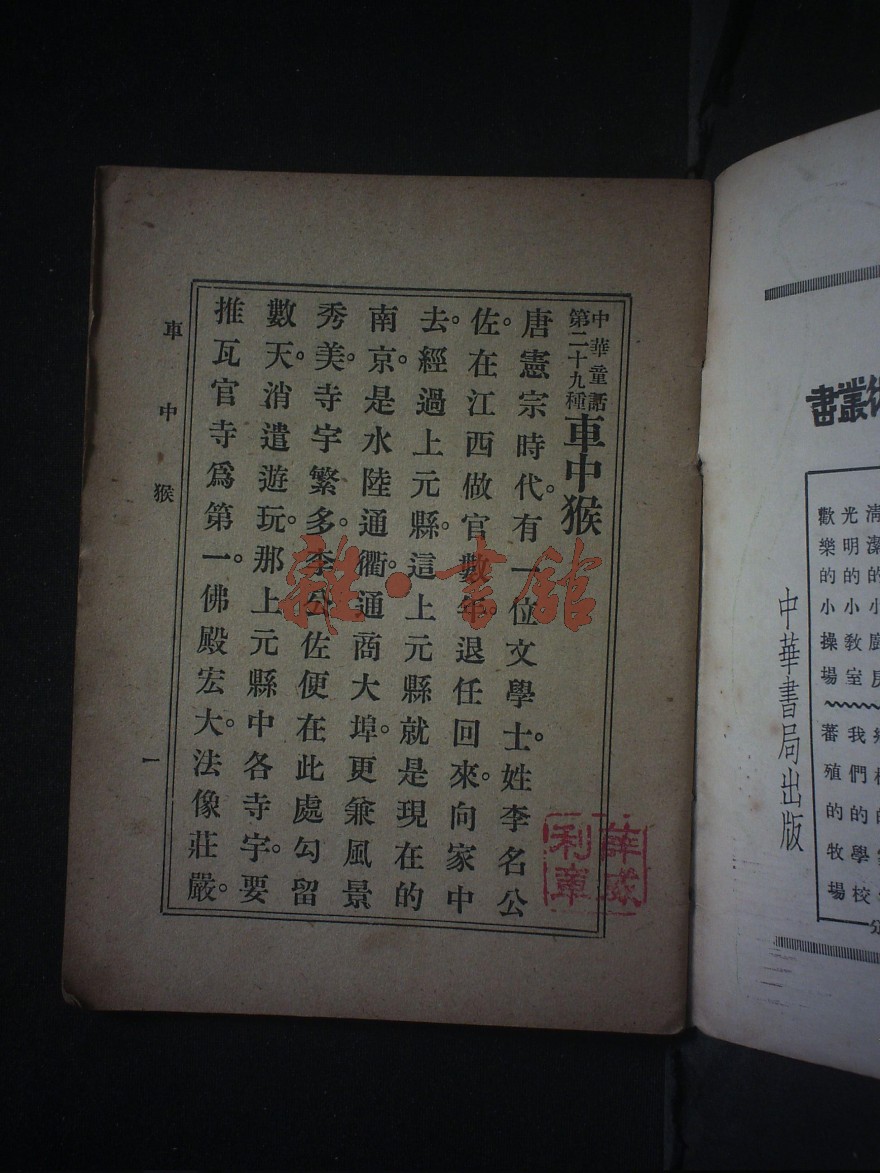 中華童話
第二十九種
車中猴
唐憲宗時代。有一位文學士。姓李名公
佐。在江西做官數年。退任回來。向家中
去。經過上元縣。這上元縣就是現在的
南京。是水陸通衢。通商大埠。更兼風景
秀美。寺宇繁多。李公佐便在此處勾留
數天。消遣遊玩。那上元縣中各寺宇。要
推瓦官寺爲第一。佛殿宏大。法像莊嚴。
車中猴
一
雜·書館
利章
叢書
光明的小教室
歡樂的小操場
我們的學校
蕃殖的牧場
中華書局出版